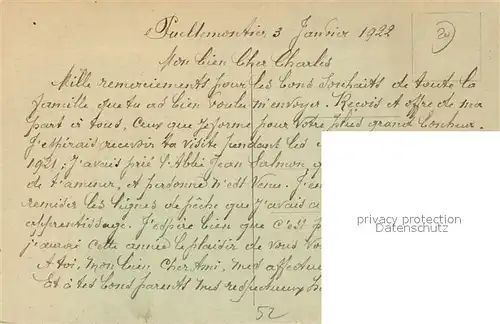 Puellemontier 3 Janvier 1922
20
Mon bien Cher Charles
Mille remerciements pour les bons souhaits de toute la
famille que tu as bien voulu m'envoyer. Reçois et offre de ma
part à tous, ceux que je forme pour votre plus grand bonheur.
J'espérais recevoir ta visite pendant les
1921; J'avais prié l'Abbé Jean Salmon,
de t'amener, et personne n'est venu. J'en
remiser les lignes de pêche que j'avais
apprentissage. J'espère bien que c'est
j'aurai cette année le plaisir de vous
A toi, mon bien Cher Ami, mes affectue
Et à tes bons parents mes respectueux
privacy protection
Datenschutz
52